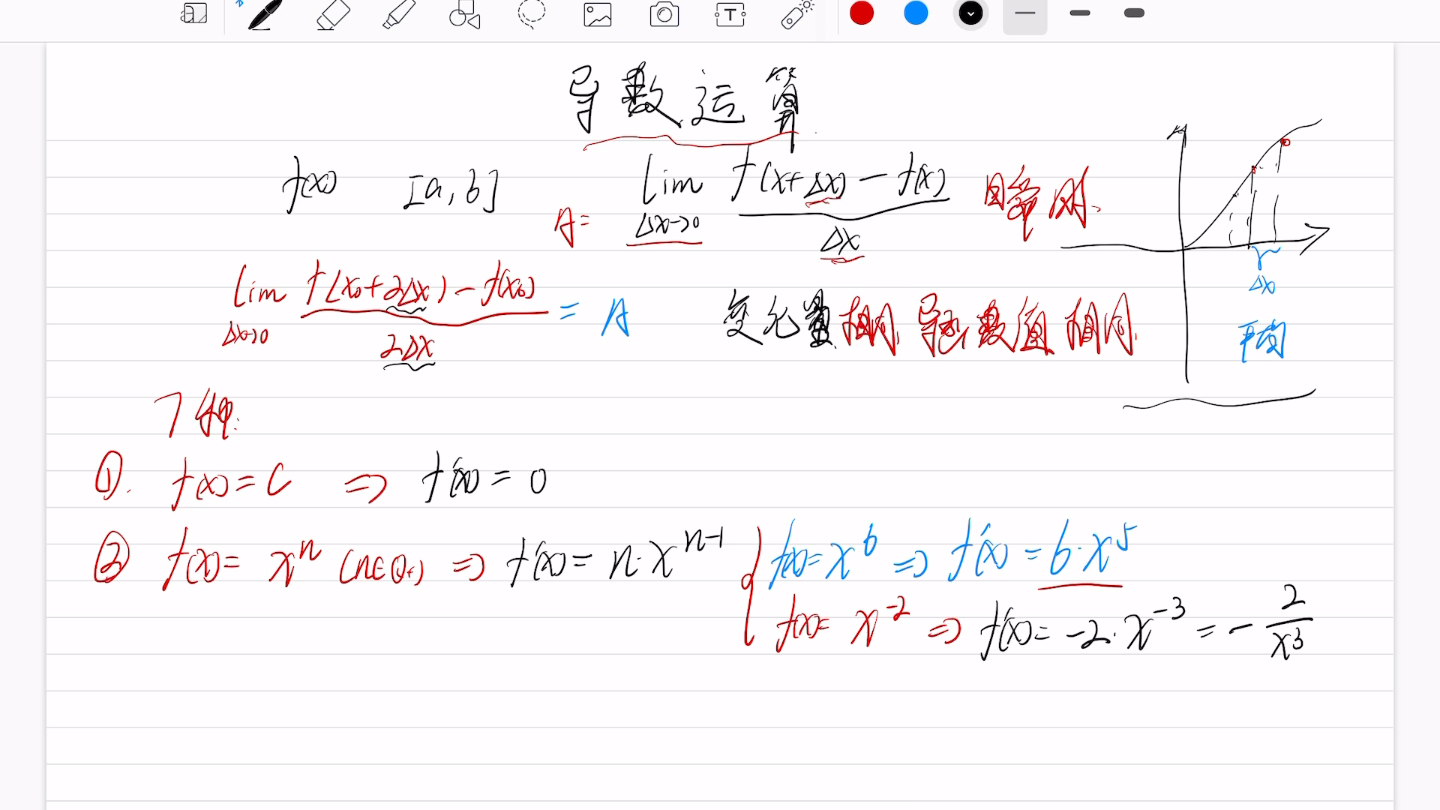 导数运算
f(x) [a,b] A= lim Δx→0 f(x+Δx)-f(x) / Δx 瞬时
lim Δx→0 f(x₀+2Δx)-f(x₀) / 2Δx = A 变化量相同 导函数值相同
Δx
平均
7种:
①. f(x)=C ⇒ f'(x)=0
② f(x)= xⁿ (n∈Q₊) ⇒ f'(x)= n·xⁿ⁻¹ { f(x)=x⁶ ⇒ f'(x)=6·x⁵
f(x)= x⁻² ⇒ f'(x)= -2·x⁻³ = - 2/x³